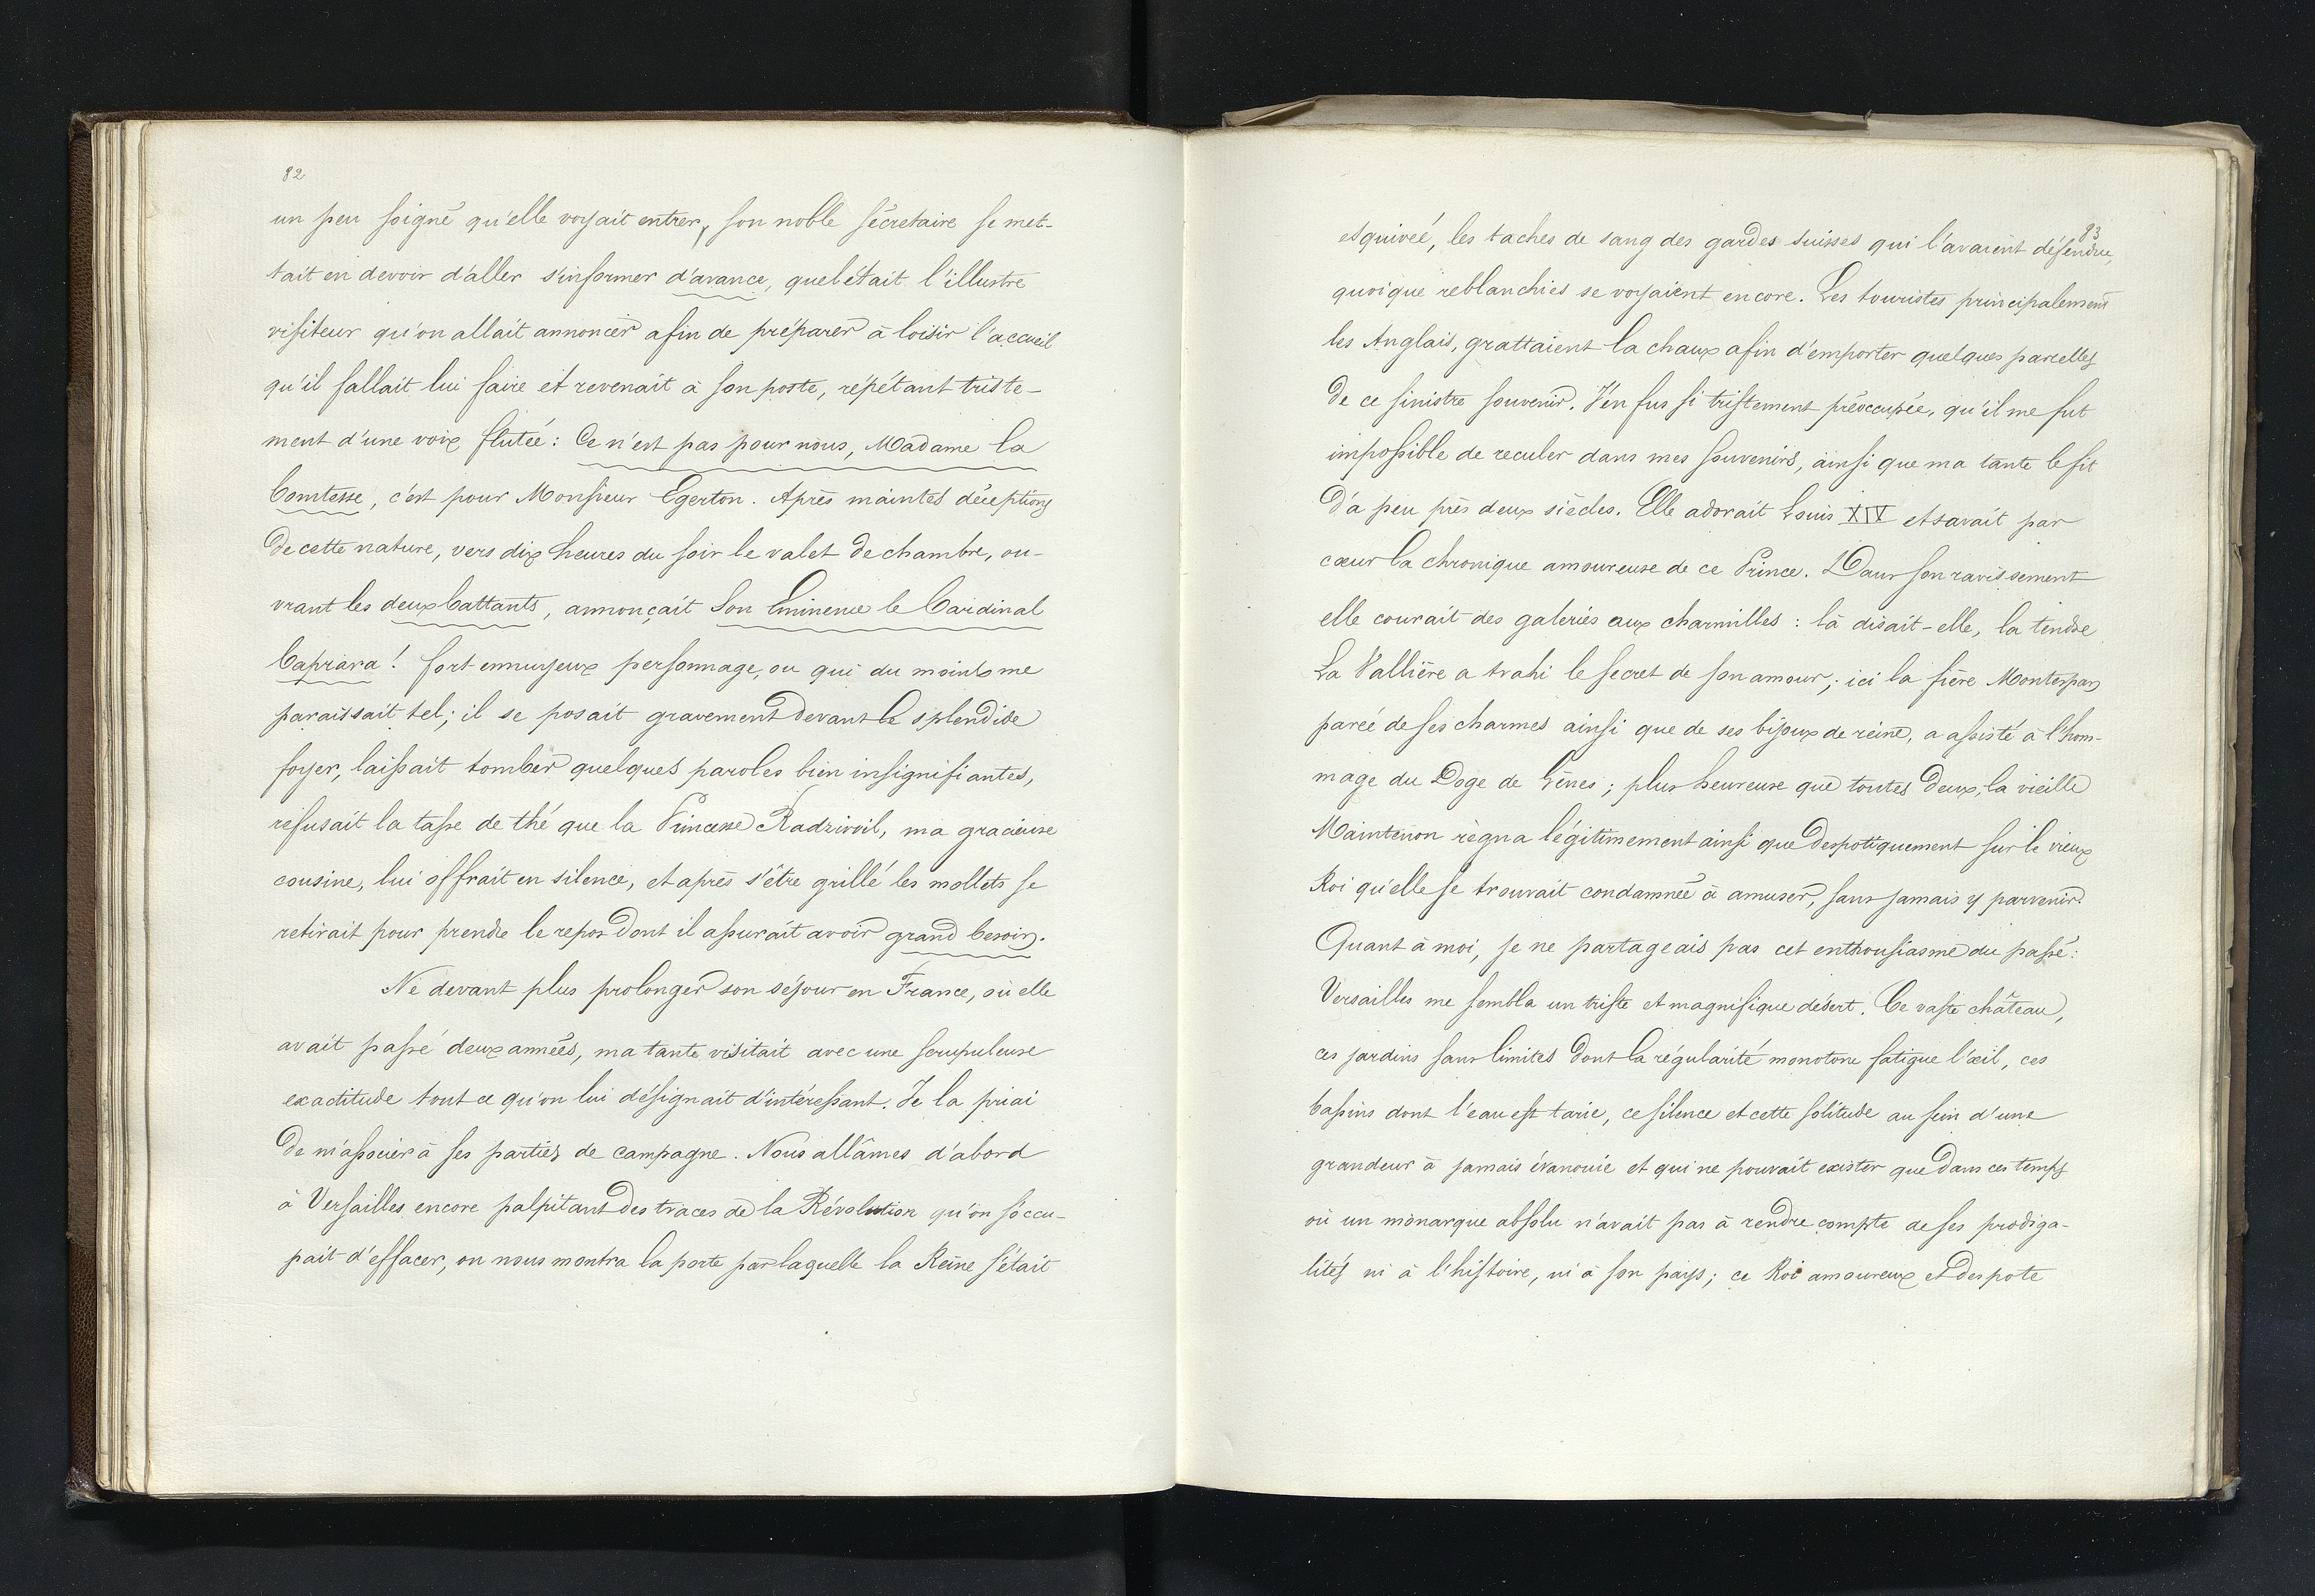 82
un peu soigné qu'elle voyait entrer, son noble sécretaire se met-
tait en devoir d'aller s'informer d'avance, quel était l'illustre
visiteur qu'on allait annoncer afin de préparer à loisir l'accueil
qu'il fallait lui faire et revenait à son poste, répétant triste-
ment d'une voix flutée : Ce n'est pas pour nous, Madame la
Comtesse, c'est pour Monsieur Egerton. Après maintes déceptions
de cette nature, vers dix heures du soir le valet de chambre, ou-
vrant les deux battants, annonçait Son Eminence le Cardinal
Caprara ! fort ennuyeux personnage, ou qui du moins me
paraissait tel ; il se posait gravement devant le splendide
foyer, laissait tomber quelques paroles bien insignifiantes,
refusait la tasse de thé que la Princesse Radziwil, ma gracieuse
cousine, lui offrait en silence, et après s'être grillé les mollets se
retirait pour prendre le repos dont il assurait avoir grand besoin.
Ne devant plus prolonger son séjour en France, où elle
avait passé deux années, ma tante visitait avec une scrupuleuse
exactitude tout ce qu'on lui désignait d'intéressant. Je la priai
de m'associer à ses parties de campagne. Nous allâmes d'abord
à Versailles encore palpitant des traces de la Révolution qu'on s'occu-
pait d'effacer, on nous montra la porte par laquelle la Reine s'était
83
esquivée, les taches de sang des gardes suisses qui l'avaient défendue,
quoique reblanchies se voyaient encore. Les touristes principalement
les Anglais, grattaient la chaux afin d'emporter quelques parcelles
de ce sinistre souvenir. J'en fus si tristement préoccupée, qu'il me fut
impossible de reculer dans mes souvenirs, ainsi que ma tante le fit
d'à peu près deux siècles. Elle adorait Louis XIV et savait par
cœur la chronique amoureuse de ce Prince. Dans son ravissement
elle courait des galeries aux charmilles : là disait-elle, la tendre
La Vallière a trahi le secret de son amour ; ici la fière Montespan
parée de ses charmes ainsi que de ses bijoux de reine, a assisté à l'hom-
mage du Doge de Gênes ; plus heureuse que toutes deux, la vieille
Maintenon règna légitimement ainsi que despotiquement sur le vieux
Roi qu'elle se trouvait condamnée à amuser, sans jamais y parvenir.
Quant à moi, je ne partageais pas cet enthousiasme du passé :
Versailles me sembla un triste et magnifique désert. Ce vaste château,
ces jardins sans limites dont la régularité monotone fatigue l'œil, ces
bassins dont l'eau est tarie, ce silence et cette solitude au sein d'une
grandeur à jamais évanouie et qui ne pouvait exister que dans ces temps
où un monarque absolu n'avait pas à rendre compte de ses prodiga-
lités ni à l'histoire, ni à son pays ; ce Roi amoureux et despote